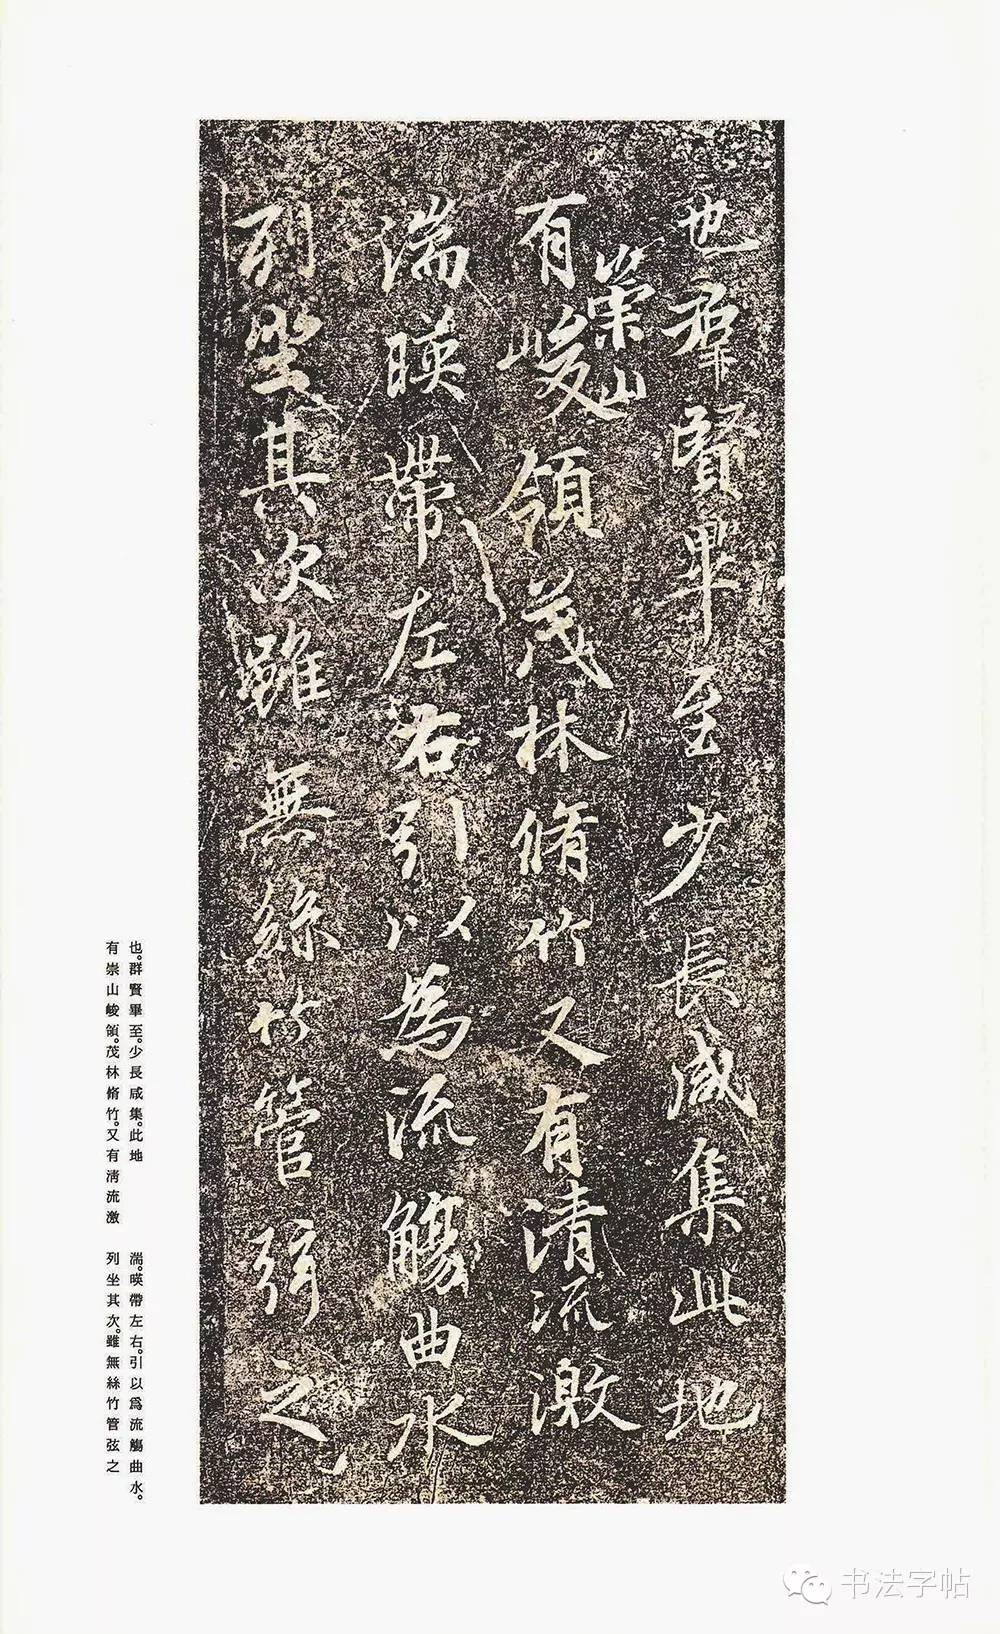 也羣賢畢至少長咸集此地
有崇山峻領茂林脩竹又有清流激
湍暎帶左右引以為流觴曲水
列坐其次雖無絲竹管弦之
也。群賢畢至。少長咸集。此地
有崇山峻領。茂林脩竹。又有清流激
湍。暎帶左右。引以爲流觴曲水。
列坐其次。雖無絲竹管弦之
书法字帖